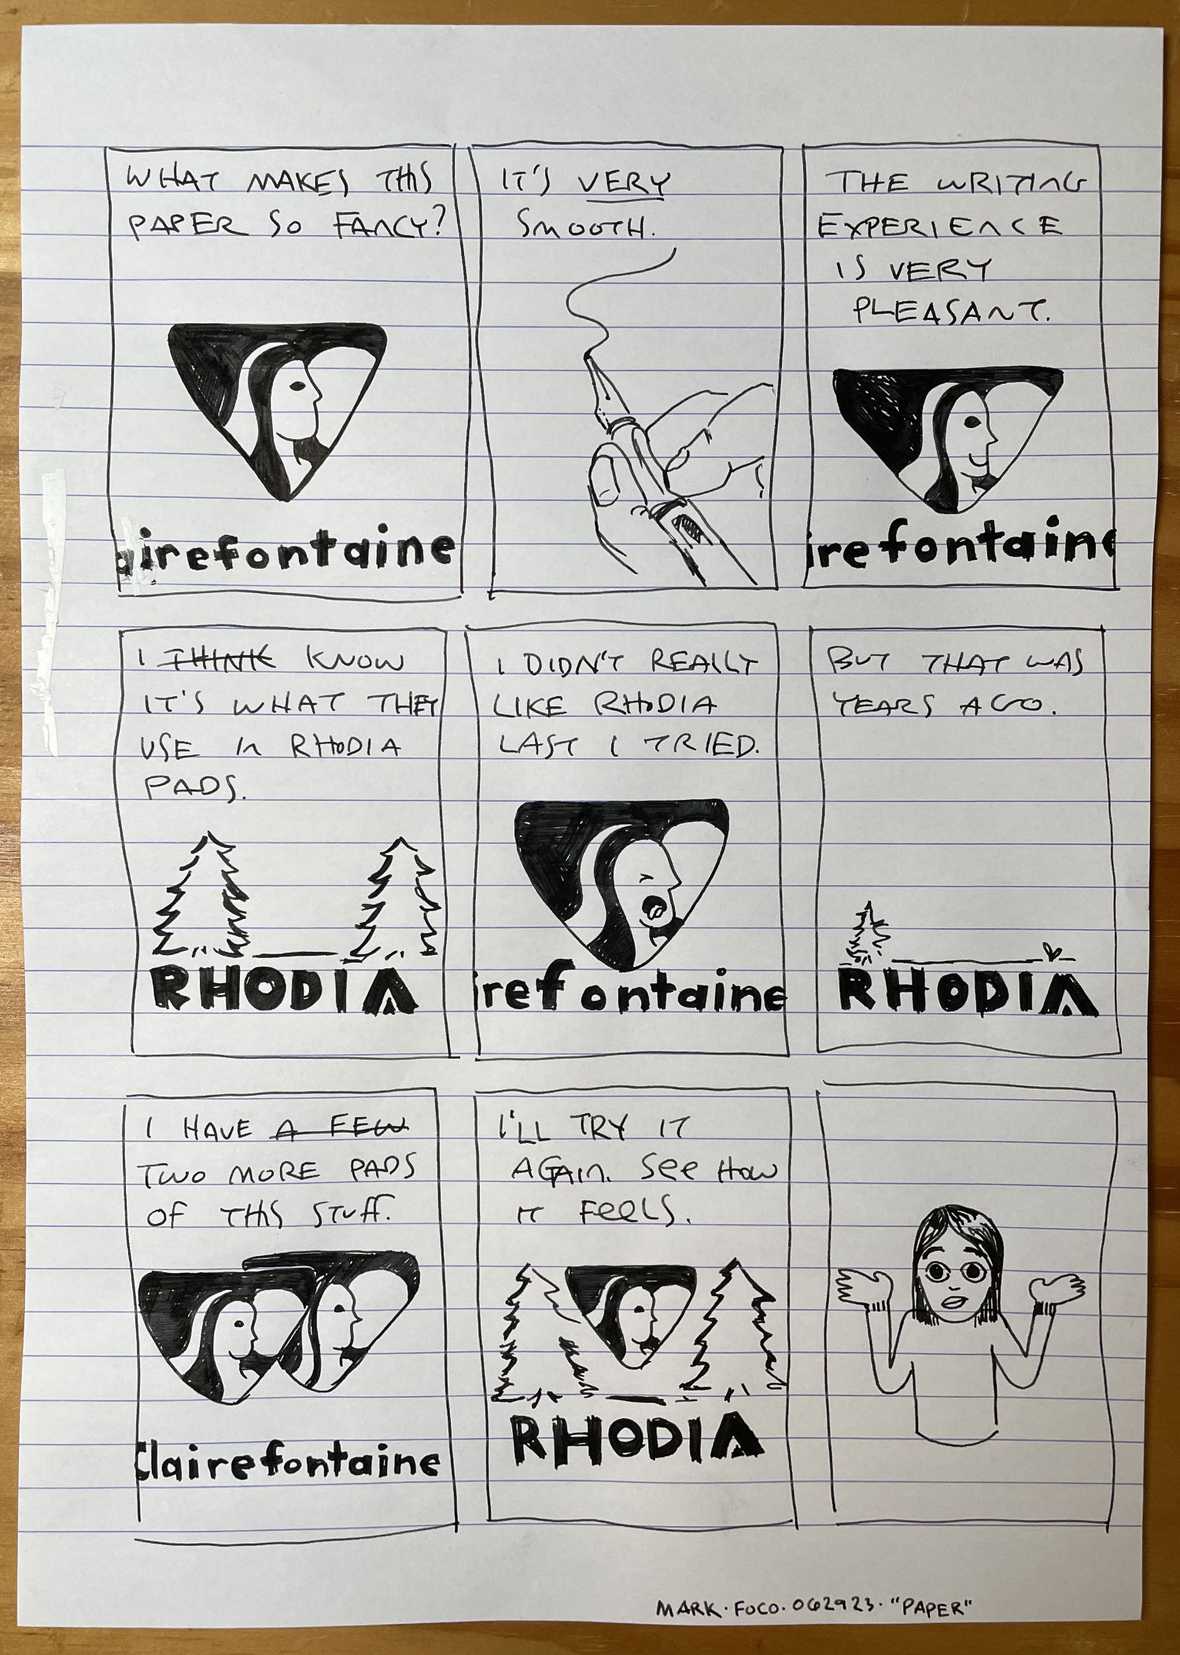 WHAT MAKES THIS
PAPER SO FANCY?
airefontaine
IT'S VERY
SMOOTH.
THE WRITING
EXPERIENCE
IS VERY
PLEASANT.
irefontaine
I THINK KNOW
IT'S WHAT THEY
USE IN RHODIA
PADS.
RHODIA
I DIDN'T REALLY
LIKE RHODIA
LAST I TRIED.
irefontaine
BUT THAT WAS
YEARS AGO.
RHODIA
I HAVE A FEW
TWO MORE PADS
OF THIS STUFF.
Clairefontaine
I'LL TRY IT
AGAIN. SEE HOW
IT FEELS.
RHODIA
MARK · FOCO · 062923 · "PAPER"